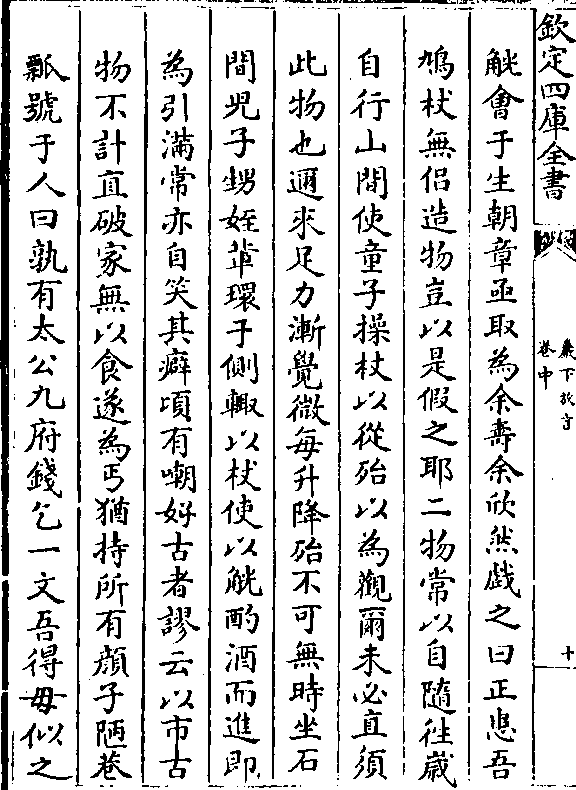 欽定四庫全書
巖下放言
卷中
十
觥會于生朝章亟取為余壽余欣然戲之曰正患吾
鳩杖無侣造物豈以是假之耶二物常以自隨往嵗
自行山間使童子操杖以從殆以為觀爾未必直須
此物也邇來足力漸覺微每升降殆不可無時坐石
間兒子甥姪軰環于側輙以杖使以觥酌酒而進即
為引滿常亦自笑其癖頃有嘲好古者謬云以市古
物不計直破家無以食遂為丐猶持所有顔子陋巷
瓢號于人曰孰有太公九府錢乞一文吾得毋似之